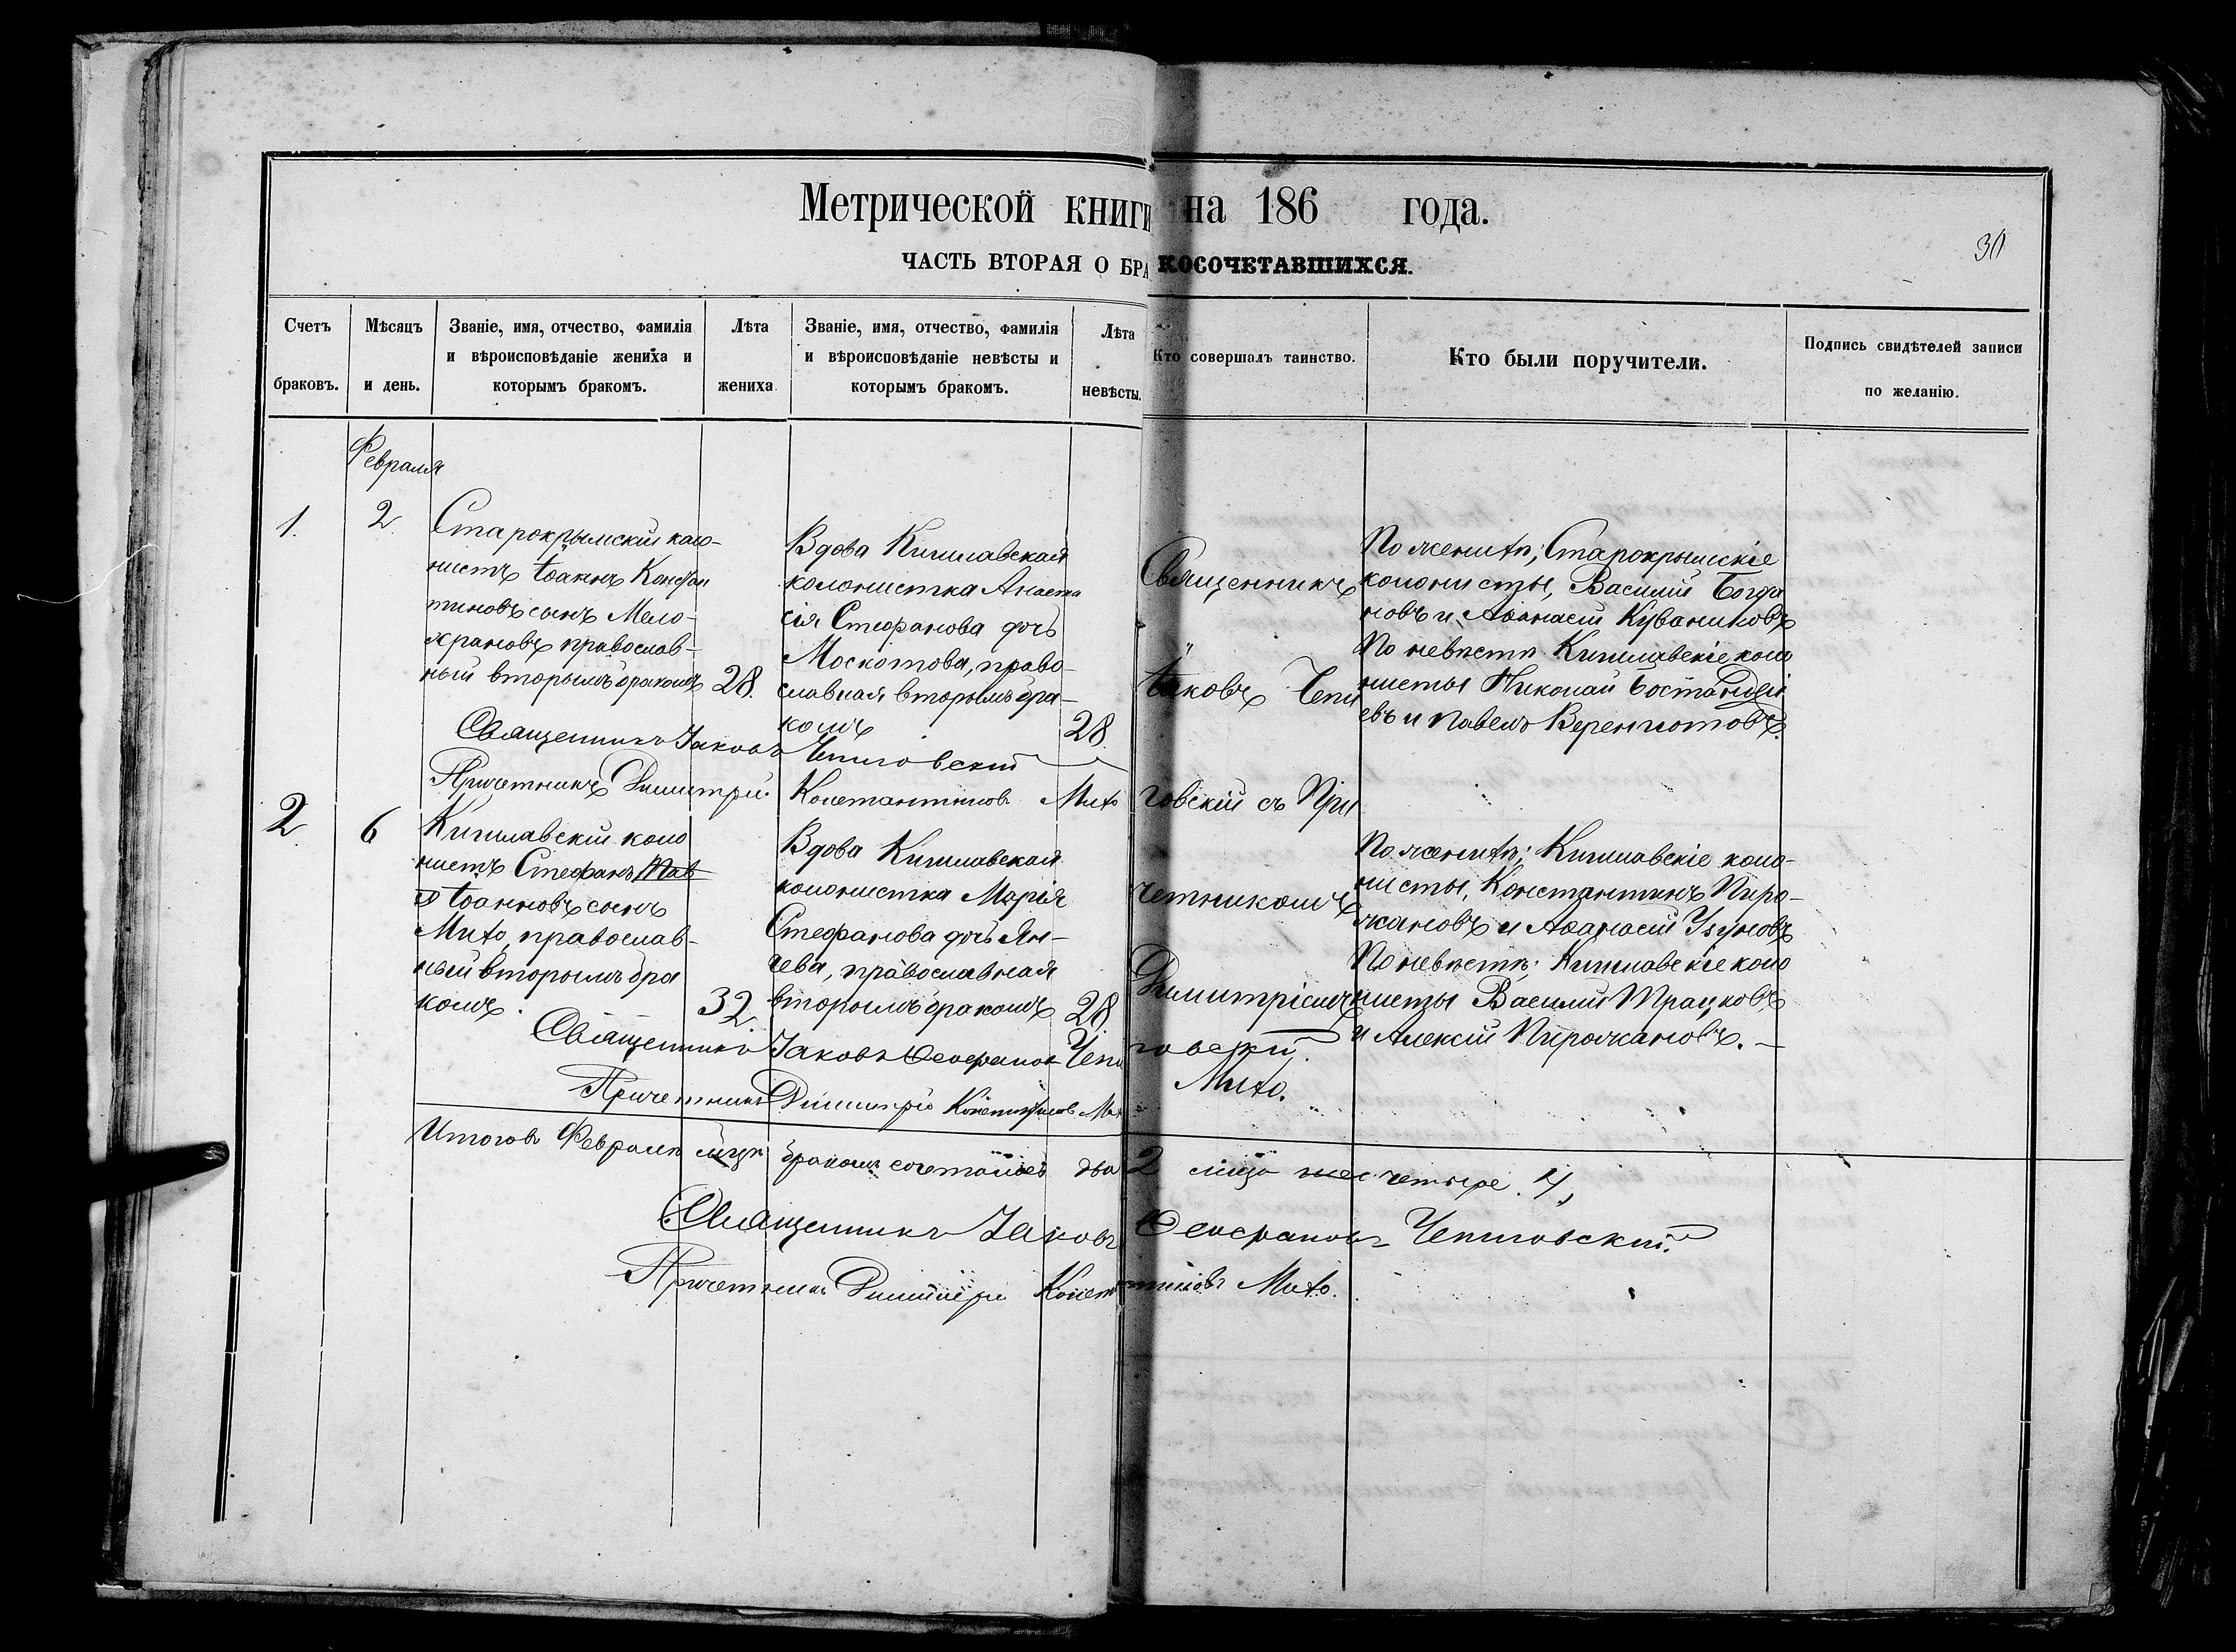 Метрической книги на 186 года.
ЧАСТЬ ВТОРАЯ О БРАКОСОЧЕТАВШИХСЯ.
30
Счетъ
браковъ.
Мѣсяцъ
и день.
Званіе, имя, отчество, фамилія
и вѣроисповѣданіе жениха и
которымъ бракомъ.
Лѣта
жениха
Званіе, имя, отчество, фамилія
и вѣроисповѣданіе невѣсты и
которымъ бракомъ.
Лѣта
невѣсты.
Кто совершалъ таинство.
Кто были поручители.
Подпись свидѣтелей записи
по желанію.
Февраля
1.
2
Старокрымскій коло-
нистъ Іоаннъ Констан
тиновъ сынъ Мело-
храновъ православ-
ный вторымъ бракомъ
28.
Вдова Кишлавская
колонистка Анаста
сія Стефанова дочь
Москотова, право-
славная вторымъ бра-
комъ
28
Священникъ
Іаковъ Чепи
говскій съ При
четникомъ
Димитріемъ
Мито.
По женихѣ; Старокрымскіе
колонисты, Василій Богда
новъ и Аѳанасій Куваниковъ
По невѣстѣ Кишлавскіе коло
нисты Николай Бостанджі
евъ и Павелъ
Священникъ Іаковъ Чепиговскій
Причетникъ Димитрій Константиновъ Мито
2
6
Кишлавскій коло
нистъ Стефанъ Пав
Іоанновъ сынъ
Мито, православ-
ный вторымъ бра
комъ.
32
Вдова Кишлавская
колонистка Марія
Стефанова дочь Ян-
чева, православная
вторымъ бракомъ
28
По женихѣ; Кишлавскіе коло-
нисты, Константинъ Пиро-
жановъ и Аѳанасій Узуновъ
По невѣстѣ; Кишлавскіе коло
нисты Василій Трацковъ
и Алексій Пирожановъ. —
Священникъ Іаковъ Ѳеофановъ Чепиговскій.
Причетникъ Димитрій Константиновъ Мито
Итого въ Февралѣ мцѣ бракомъ сочеталось два 2 лица четыре. 4,
Священникъ Іаковъ Ѳеофановъ Чепиговскій.
Причетникъ Димитрій Константиновъ Мито.